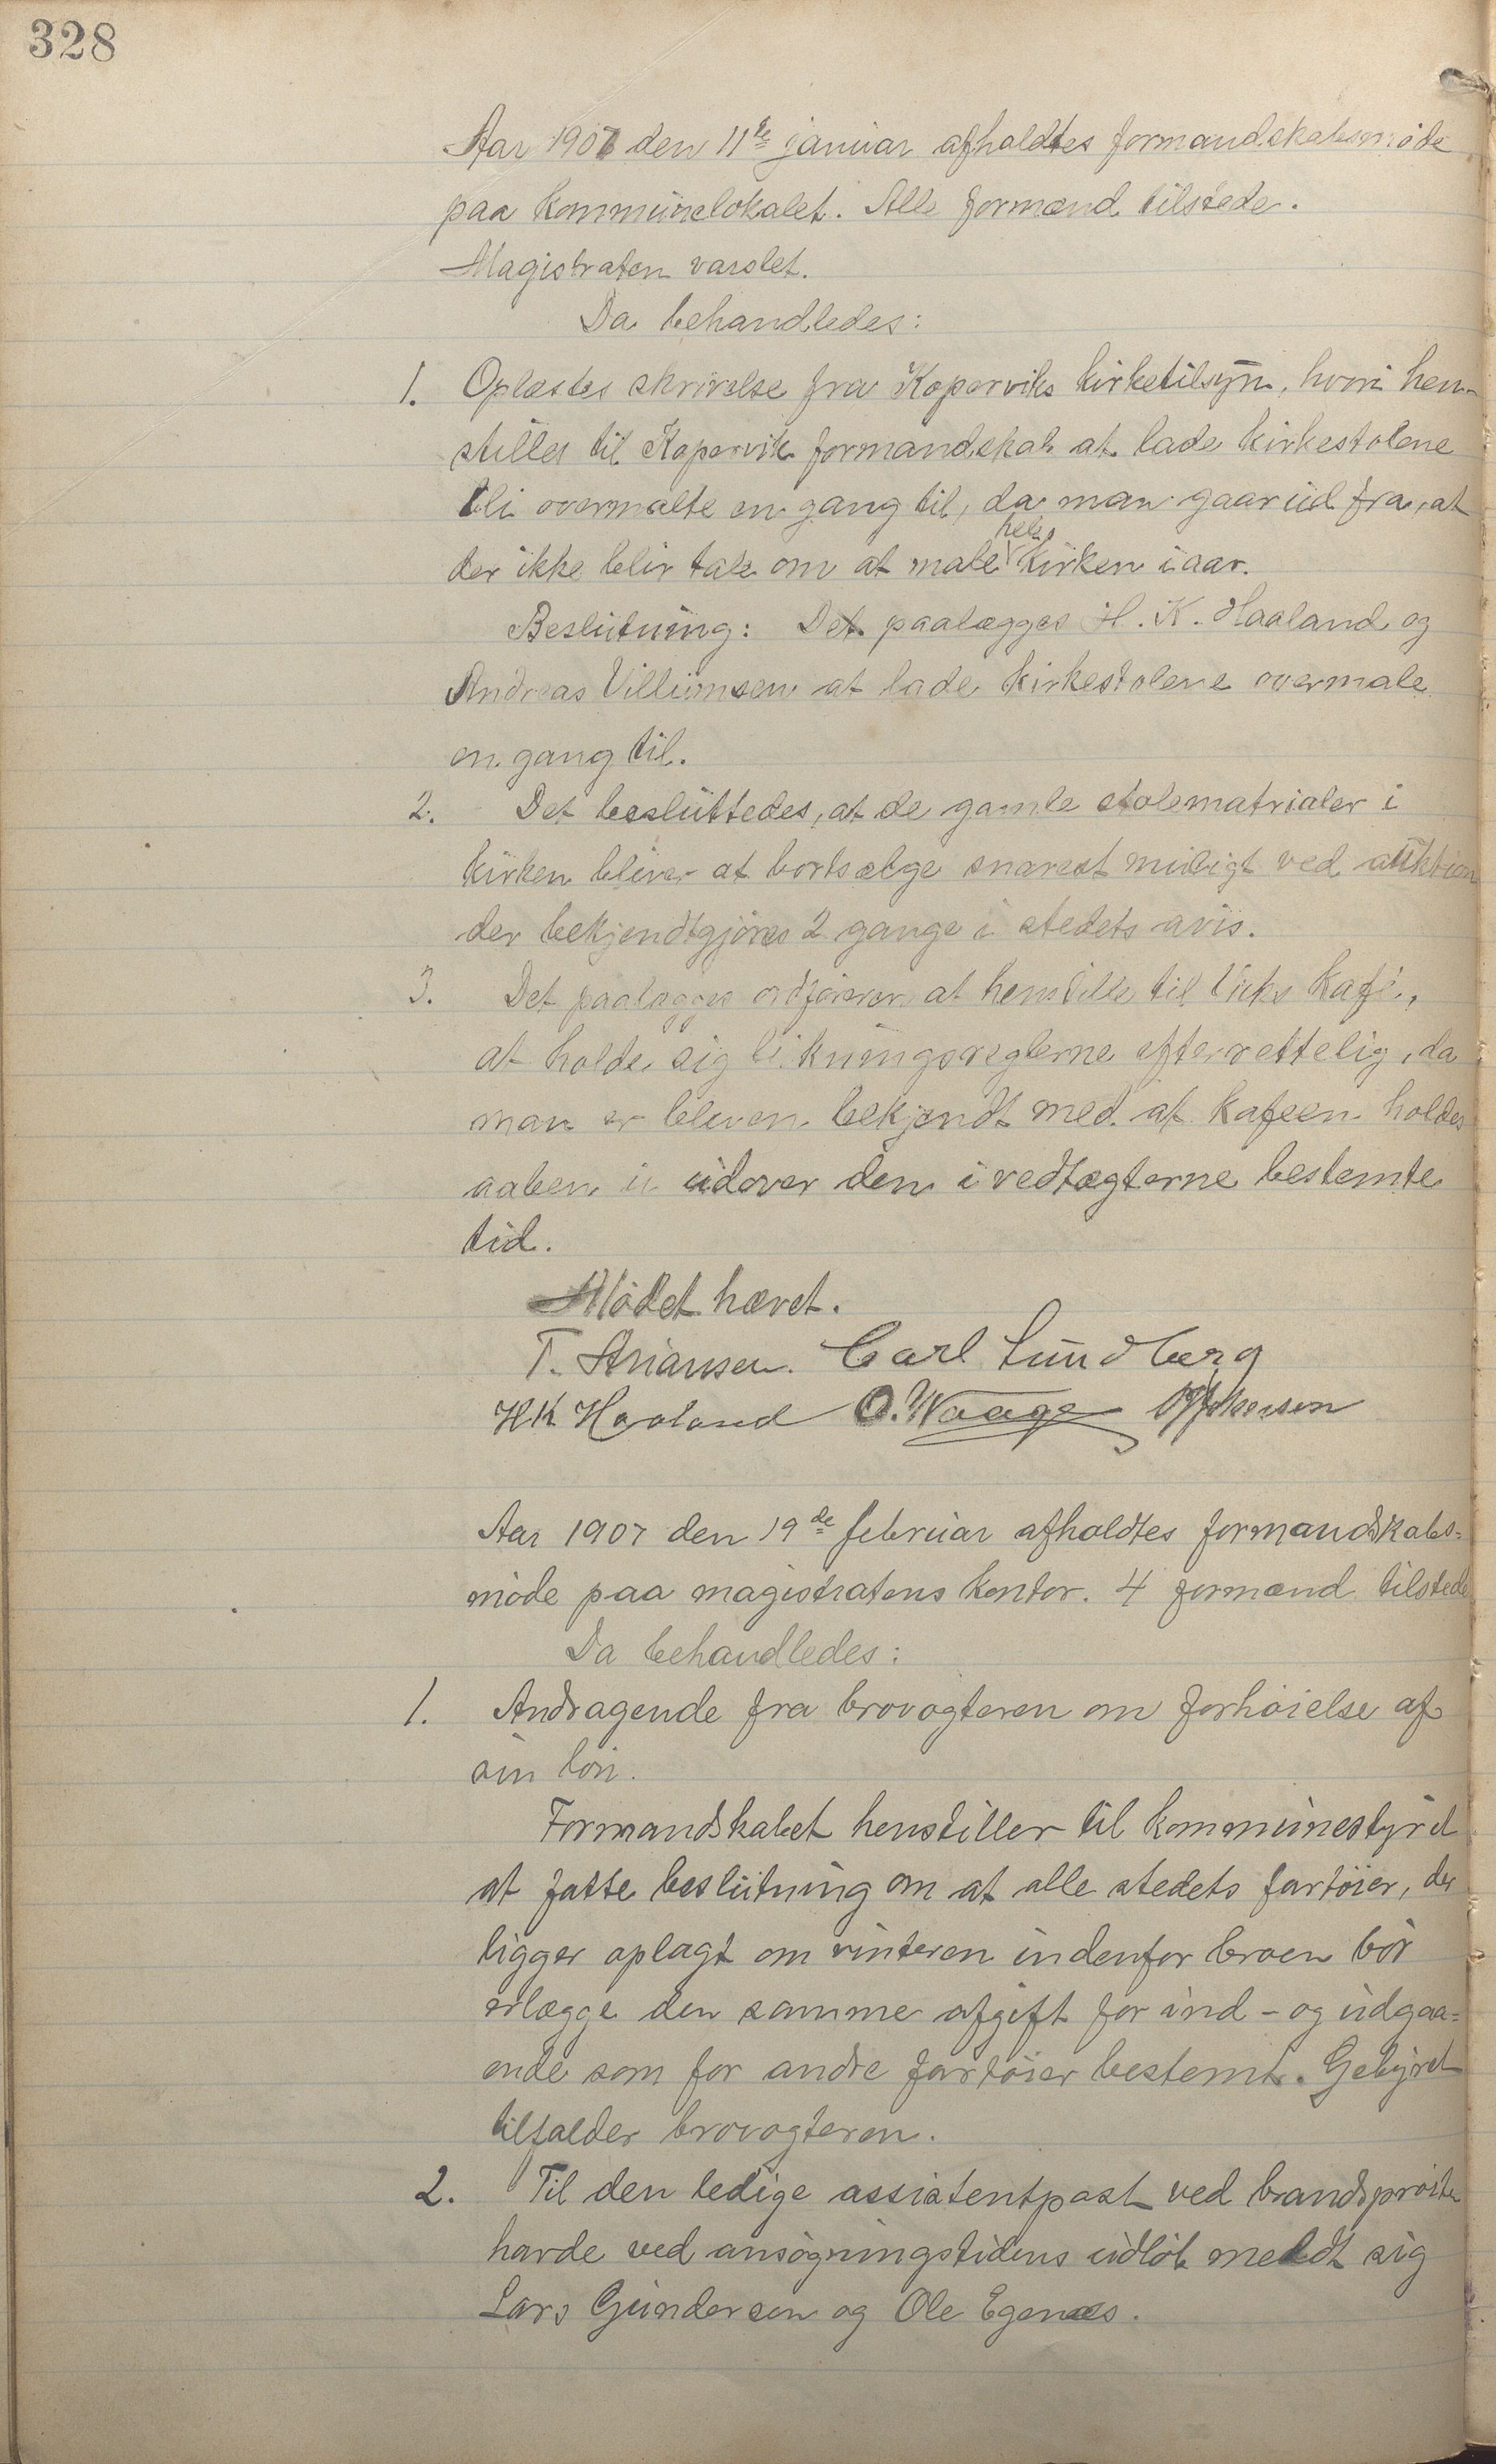 328
Aar 1907 den 11te januar afholdtes formandskabsmøde
paa kommunelokalet. Alle formænd tilstede.
Magistraten varslet.
Da behandledes:
1. Oplæstes skrivelse fra Koperviks kirketilsyn, hvori hen-
stilles til Kopervik formandskab at lade kirkestolene
bli overmalte en gang til, da man gaar ud fra, at
der ikke blir tale om at male hele kirken iaar.
Beslutning: Det paalægges H. K. Haaland og
Andreas Villumsen at lade kirkestolene overmale
en gang til.
2. Det besluttedes, at de gamle stolematrialer i
kirken bliver at bortsælge snarest muligt ved auktion
der bekjendtgjøres 2 gange i stedets avis.
3. Det paalægges ordføreren at henstille til kafé,
at holde sig lukningsreglerne efterrettelig, da
man er bleven bekjendt med at kafeen holdes
aaben udover den i vedtægterne bestemte
tid.
Mødet hævet.
T. Carl Lundberg
H.K. Haaland O. Waage
Aar 1907 den 19de februar afholdtes formandskabs-
møde paa magistratens kontor. 4 formænd tilstede
Da behandledes:
1. Andragende fra brovogteren om forhøielse af
sin løn.
Formandskabet henstiller til kommunestyret
at fatte beslutning om at alle stedets fartøier, der
ligger oplagt om vinteren indenfor broen bør
erlægge den samme afgift for ind- og udgaa-
ende som for andre fartøier bestemt. Gebyret
tilfalder brovogteren.
2. Til den ledige assistentpost ved brandsprøiten
havde ved ansøgningstidens udløb meldt sig
Lars Gundersen og Ole Egenæs.